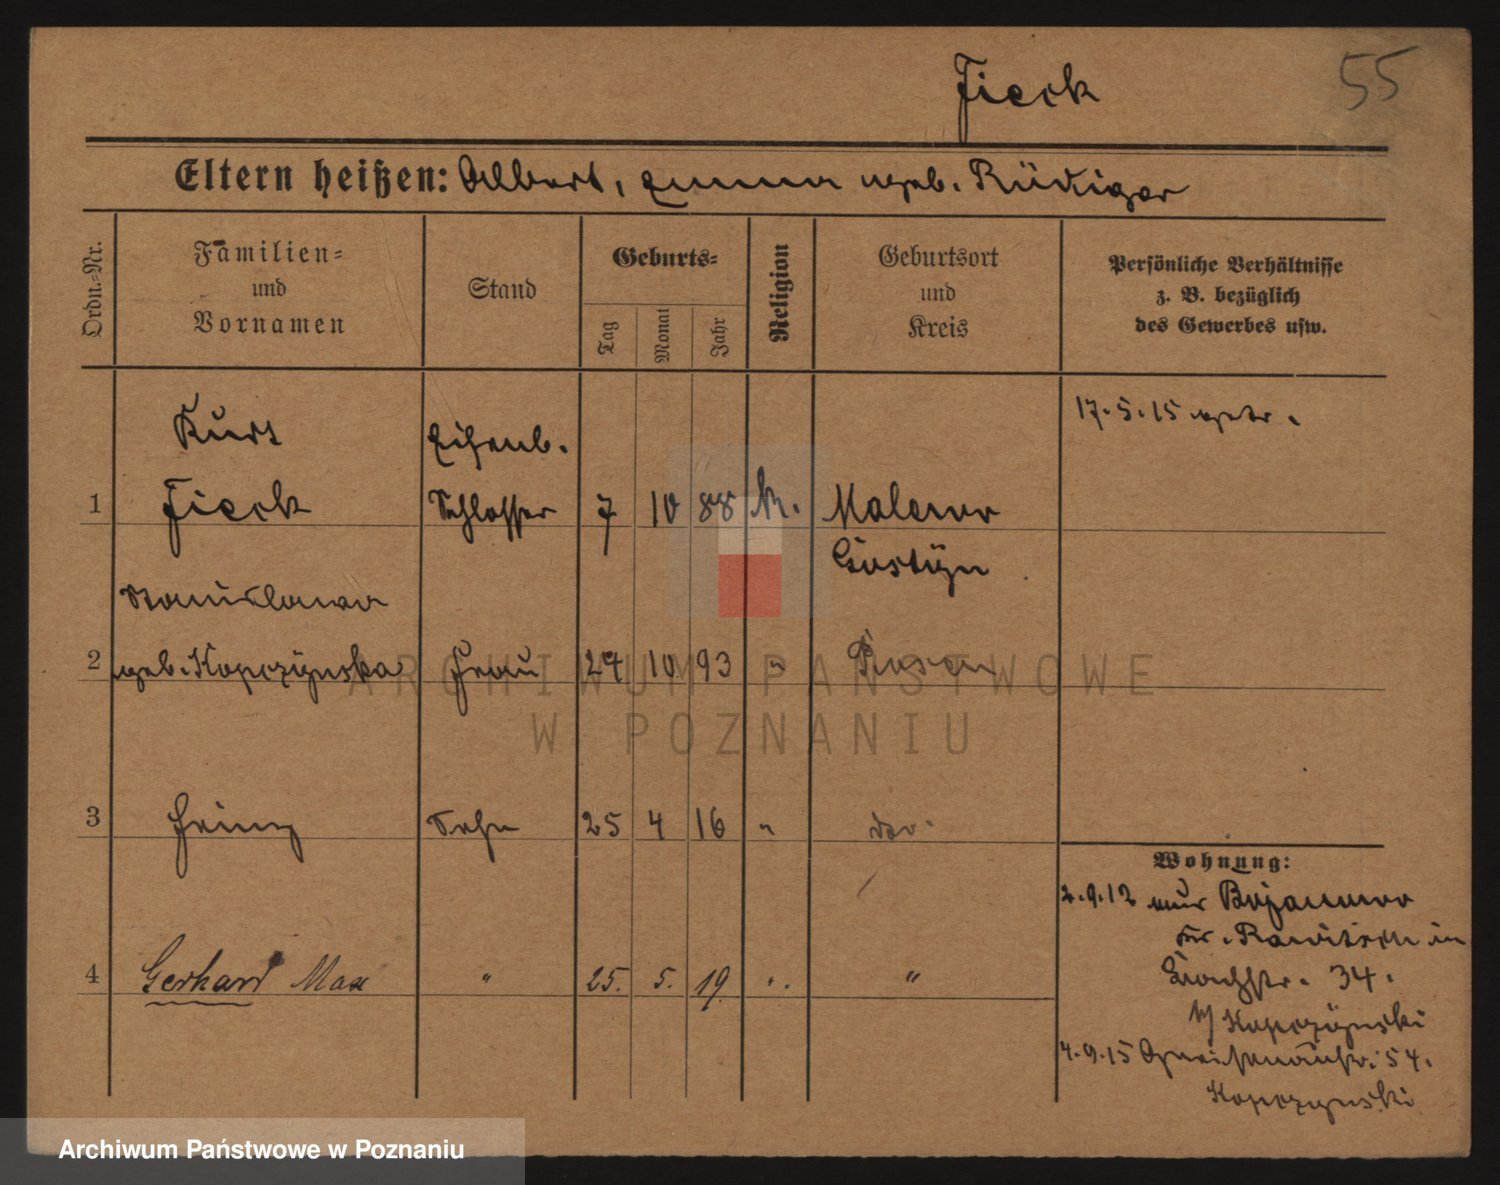 Fieck
55
Eltern heißen: Albert, Emma geb. Rüdiger
Ordn.-Nr.
Familien-
und
Vornamen
Stand
Geburts-
Tag
Monat
Jahr
Religion
Geburtsort
und
Kreis
Persönliche Verhältnisse
z. B. bezüglich
des Gewerbes usw.
17.5.15 getr.
Kurt
Eisenb.
1 Fieck Schlosser 7 10 88 k. Malewo
Gostÿn
Stanislawa
2 geb. Kopczÿnska Frau 24 10 93 " Posen
ARCHIWUM PAŃSTWOWE
W POZNANIU
3 Heinz Sohn 25 4 16 " do.
Wohnung:
2.9.12 aus Bojanowo
Kr. Rawitsch in
4 Gerhard Max " 25. 5. 19. " "
34.
b/ Kopczÿnski
4.9.15 Gneisenaustr. 54.
Kopczynski
Archiwum Państwowe w Poznaniu